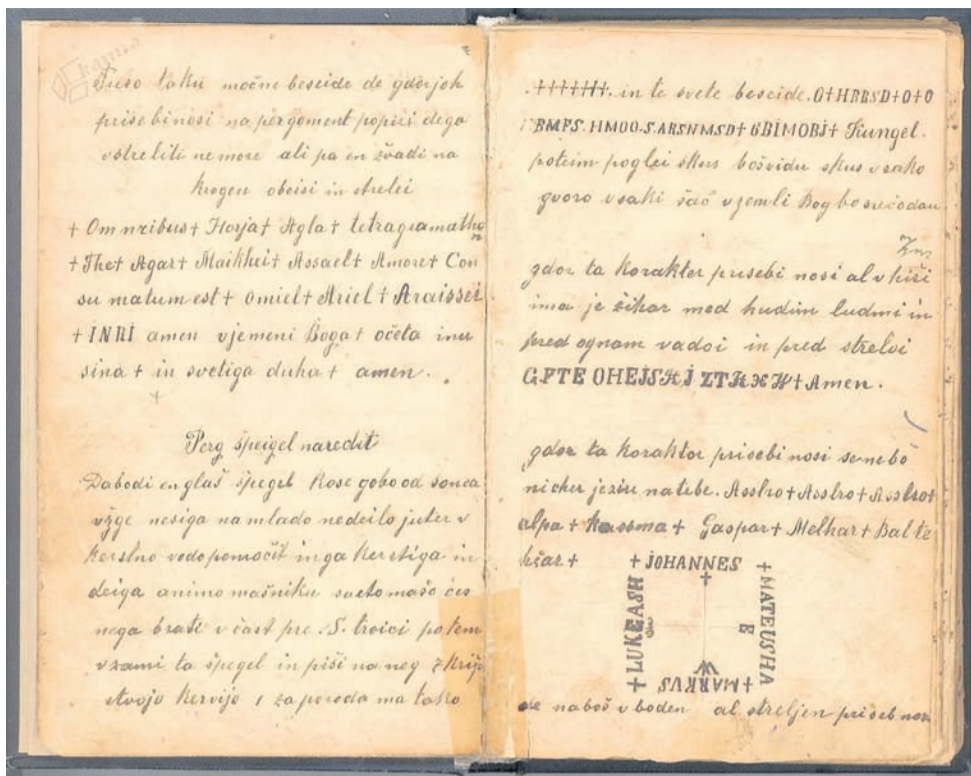 Tuso taku močne beseide de gdorjoh
prisebi nosi na pergoment popiši dega
vstreliti nemore ali pa en zvadi na
krogeu obeisi in strelei
+ Omnribus + Hosja + Agla + tetragramathon
+ The + Agar + Maikhei + Assael + Amore + Con
su matum est + Omiel + Ariel + Araissei
+ INRI amen vjemeni Boga + očeta inu
sina + in svetiga duha + amen.
Perg špeigel naredit
Dabodi en glaš špegel Kose gobo od sonca
vžge nesiga na mlado nedeilo juter v
kerstno vodo pomočit in ga kerstiga in
deiga animo mašniku sveto mašo čes
nega brati v čast pre .S. troici potem
vzami ta špegel in piši na neg z krij
stvojo kervijo zapoveda ma tako
+++++++. in te svete beseide. O+HRBSD+O+O
BMFS. HMOO.S.ARSNMSD+ GBIMOBJ+ Kungel.
poteim poglei skus boš vidu skus vsako
gvoro vsaki šac v zemli Bog bo srečo dau
gdor ta Korakter prisebi nosi al v hiši
ima je sihar med hudim ludmi in
pred ognam vadoi in pred strelvi
G.FTE OHEJS ZT + Amen.
gdor ta Korakter prisebi nosi se nebo
nicher jeziu na tebe. Asstro + Asstro + Asstro +
alpa + kassma + Gaspar + Melhar + Balte
hčar + + JOHANNES
+ LUKEASH + MATEUSHA
+ MARKUS
de naboš v boden al streljen priseb nos